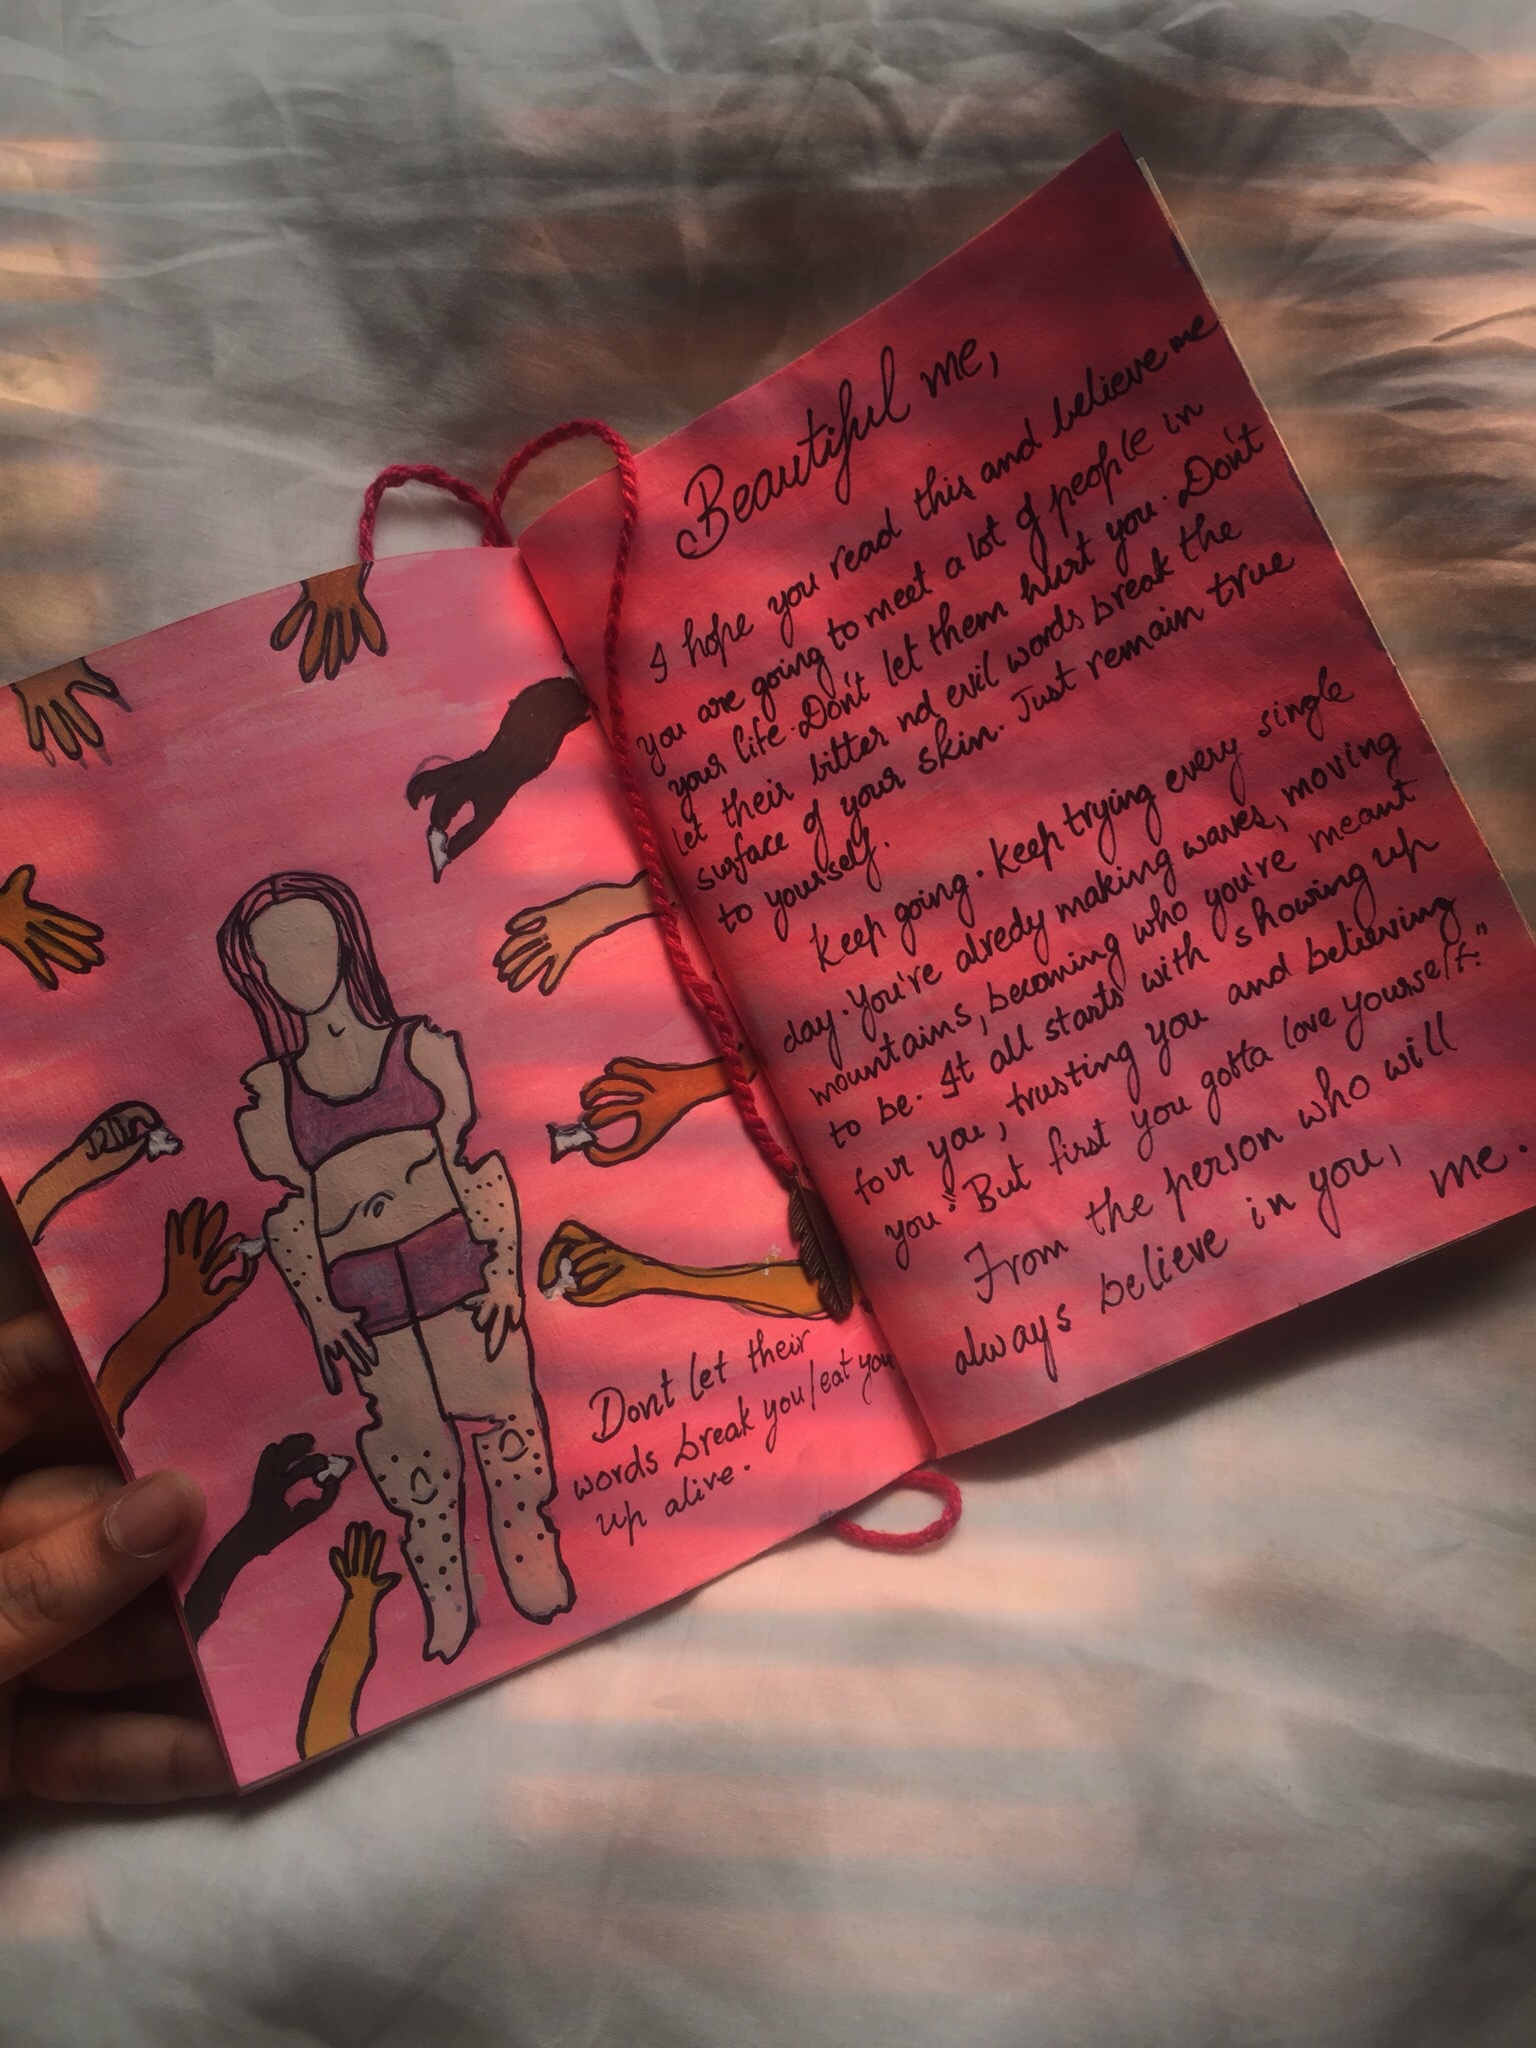 Dont let their
words break you/eat you
up alive.
Beautiful me,
I hope you read this and believe me
you are going to meet a lot of people in
your life. Don't let them hurt you. Don't
let their bitter nd evil words break the
surface of your skin. Just remain true
to yourself.
Keep going. Keep trying every single
day. You're alredy making waves, moving
mountains, becoming who you're meant
to be. It all starts with showing up
for you, trusting you and believing
you" But first you gotta love yourself."
From the person who will
always believe in you,
me.